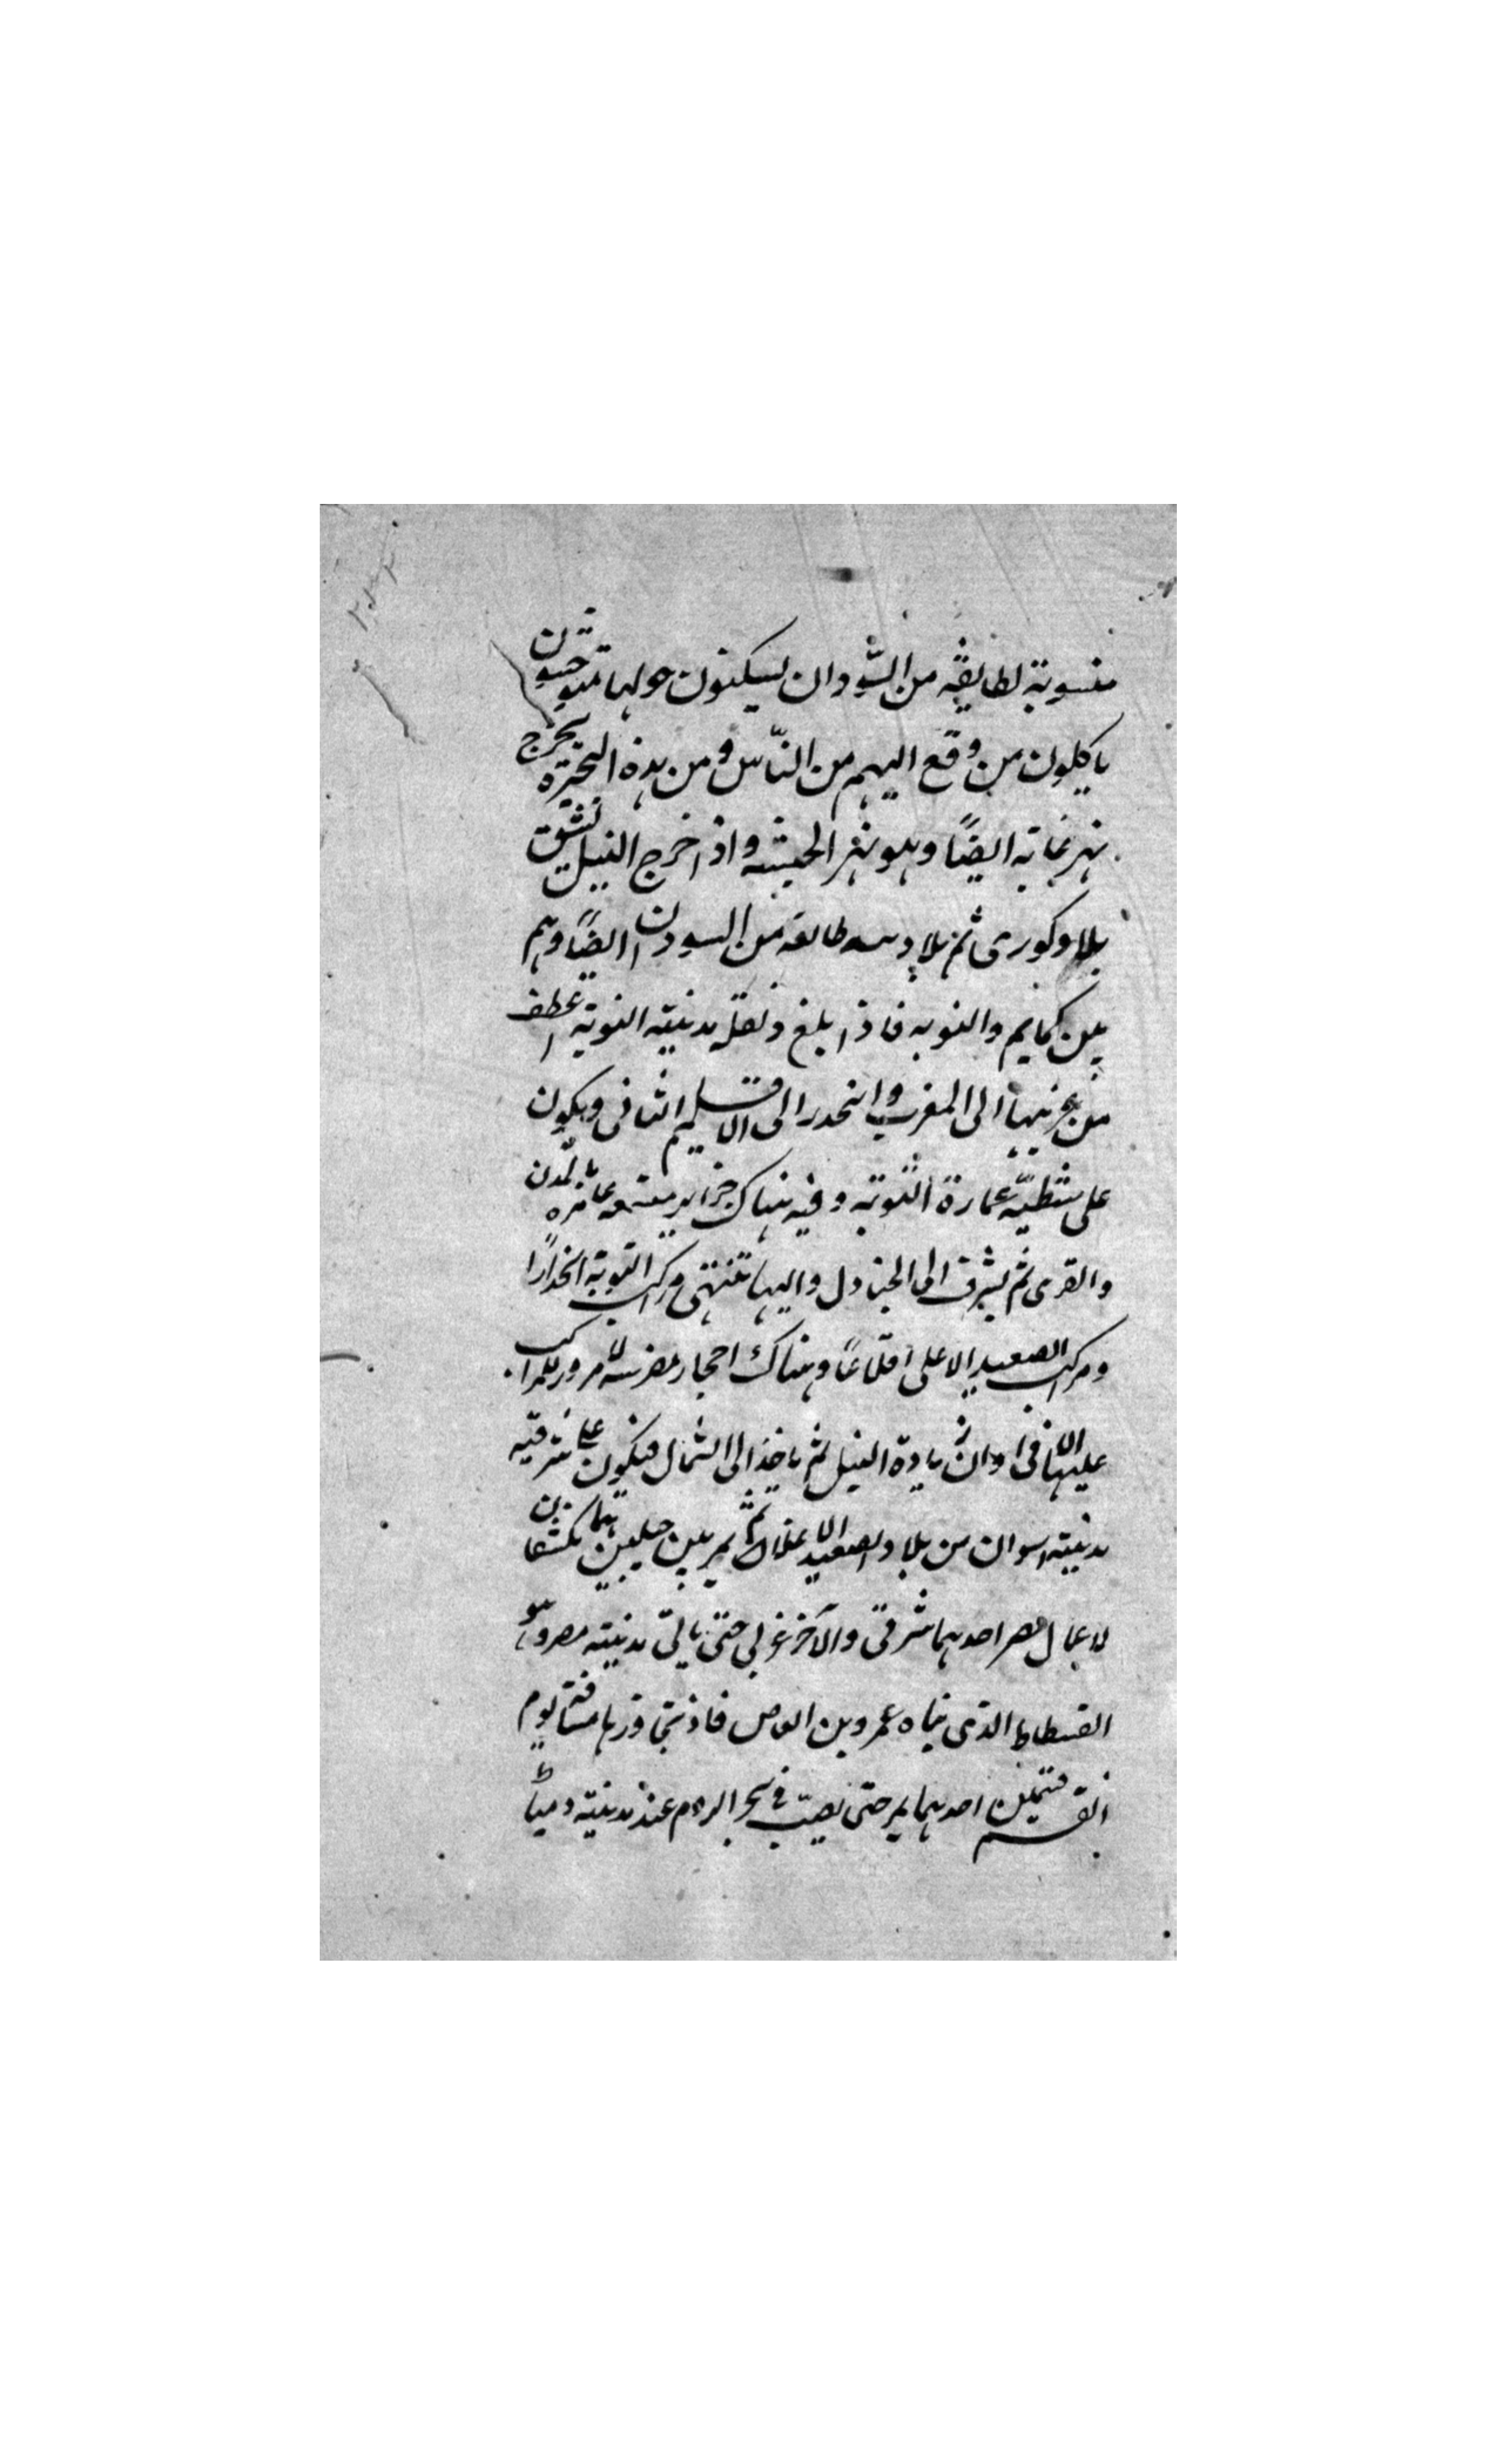 منسوبة لطايفة من السودان يسكنون حولها متوحشون
ياكلون من وقع اليهم من الناس ومن هذه البحيرة يخرج
نهر غانه ايضًا وهو نهر الحبشه واذا خرج النيل يشق
بلاد كورى ثم بلاد ينه طايفه من السودان ايضًا وهم
بين كمايم والنوبه فاذا بلغ دنقله مدينة النوبة عطف
من غربيها الى المغرب وانحدر الى الاقليم الثانى ويكون
على شطيّه عمارة النوبة وفيه هناك جزاير متسعه عامره بالمدن
والقرى ثم يشرق الى الجنادل واليها تنتهى مراكب النوبة انحدارًا
ومراكب الصعيد الاعلى اقلاعًا وهناك احجار مضرسه لا مرور للمراكب
عليها الا فى اوان زيادة النيل ثم ياخذ الى الشمال فيكون على شرقيه
مدينة اسوان من بلاد الصعيد الاعلا ثم يمر بين جبلين هما مكتنفان
لاعمال مصر احدهما شرقى والآخر غربى حتى ياتى مدينة مصر وهو
الفسطاط الذى بناه عمرو بن العاص فاذا تجاوزها مسافة يوم
انقسم قسمين احدهما يمر حتى يصب فى بحر الروم عند مدينة دمياط